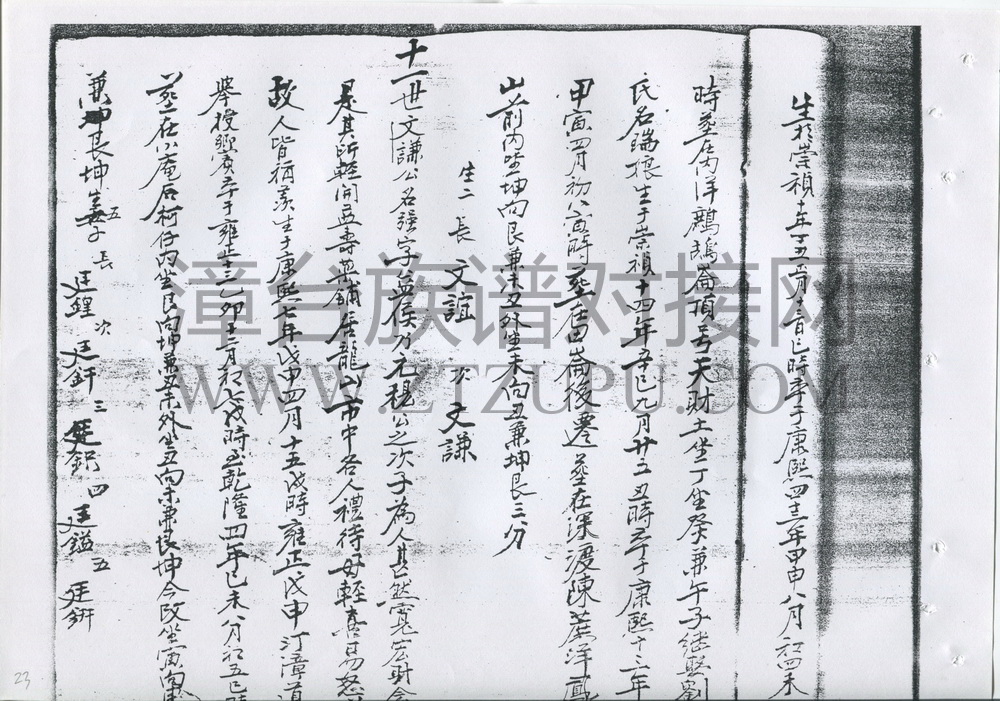 生於崇禎十年丁丑 月十三日巳時卒于康熙四十三年甲申八月初四未
時葬在內洋鷓鴣崙頂号天財土坐丁坐癸兼午子繼娶劉
氏名瑞娘生于崇禎十四年辛巳九月廿三丑時卒于康熙十三年
甲寅四月初八寅時葬在田崙後遷葬在深渡陳蔗洋
山前內坐坤向艮兼未丑外坐未向丑兼坤艮三分
生二 長 文誼 次 文謙
十一世文謙公名強字益侯乃元穆公之次子為人甚然寬宏財
是其所輕開益壽 鋪居龍山市中名人禮待毋輕喜易怒
故人皆稱羨生于康熙七年戊申四月十五戌時雍正戊申汀漳道
舉授 賓卒于雍正十三乙卯十二月初七戌時 乾隆四年己未八月初五巳時
葬在小庵后柯仔內坐艮向坤兼丑未外坐丑向未兼艮坤今改坐寅向
兼 艮坤生五子 長 廷鍠 次 廷釬 三 廷 四 廷鎰 五 廷鈃
漳台族谱对接网
WWW.ZTZUPU.COM
23